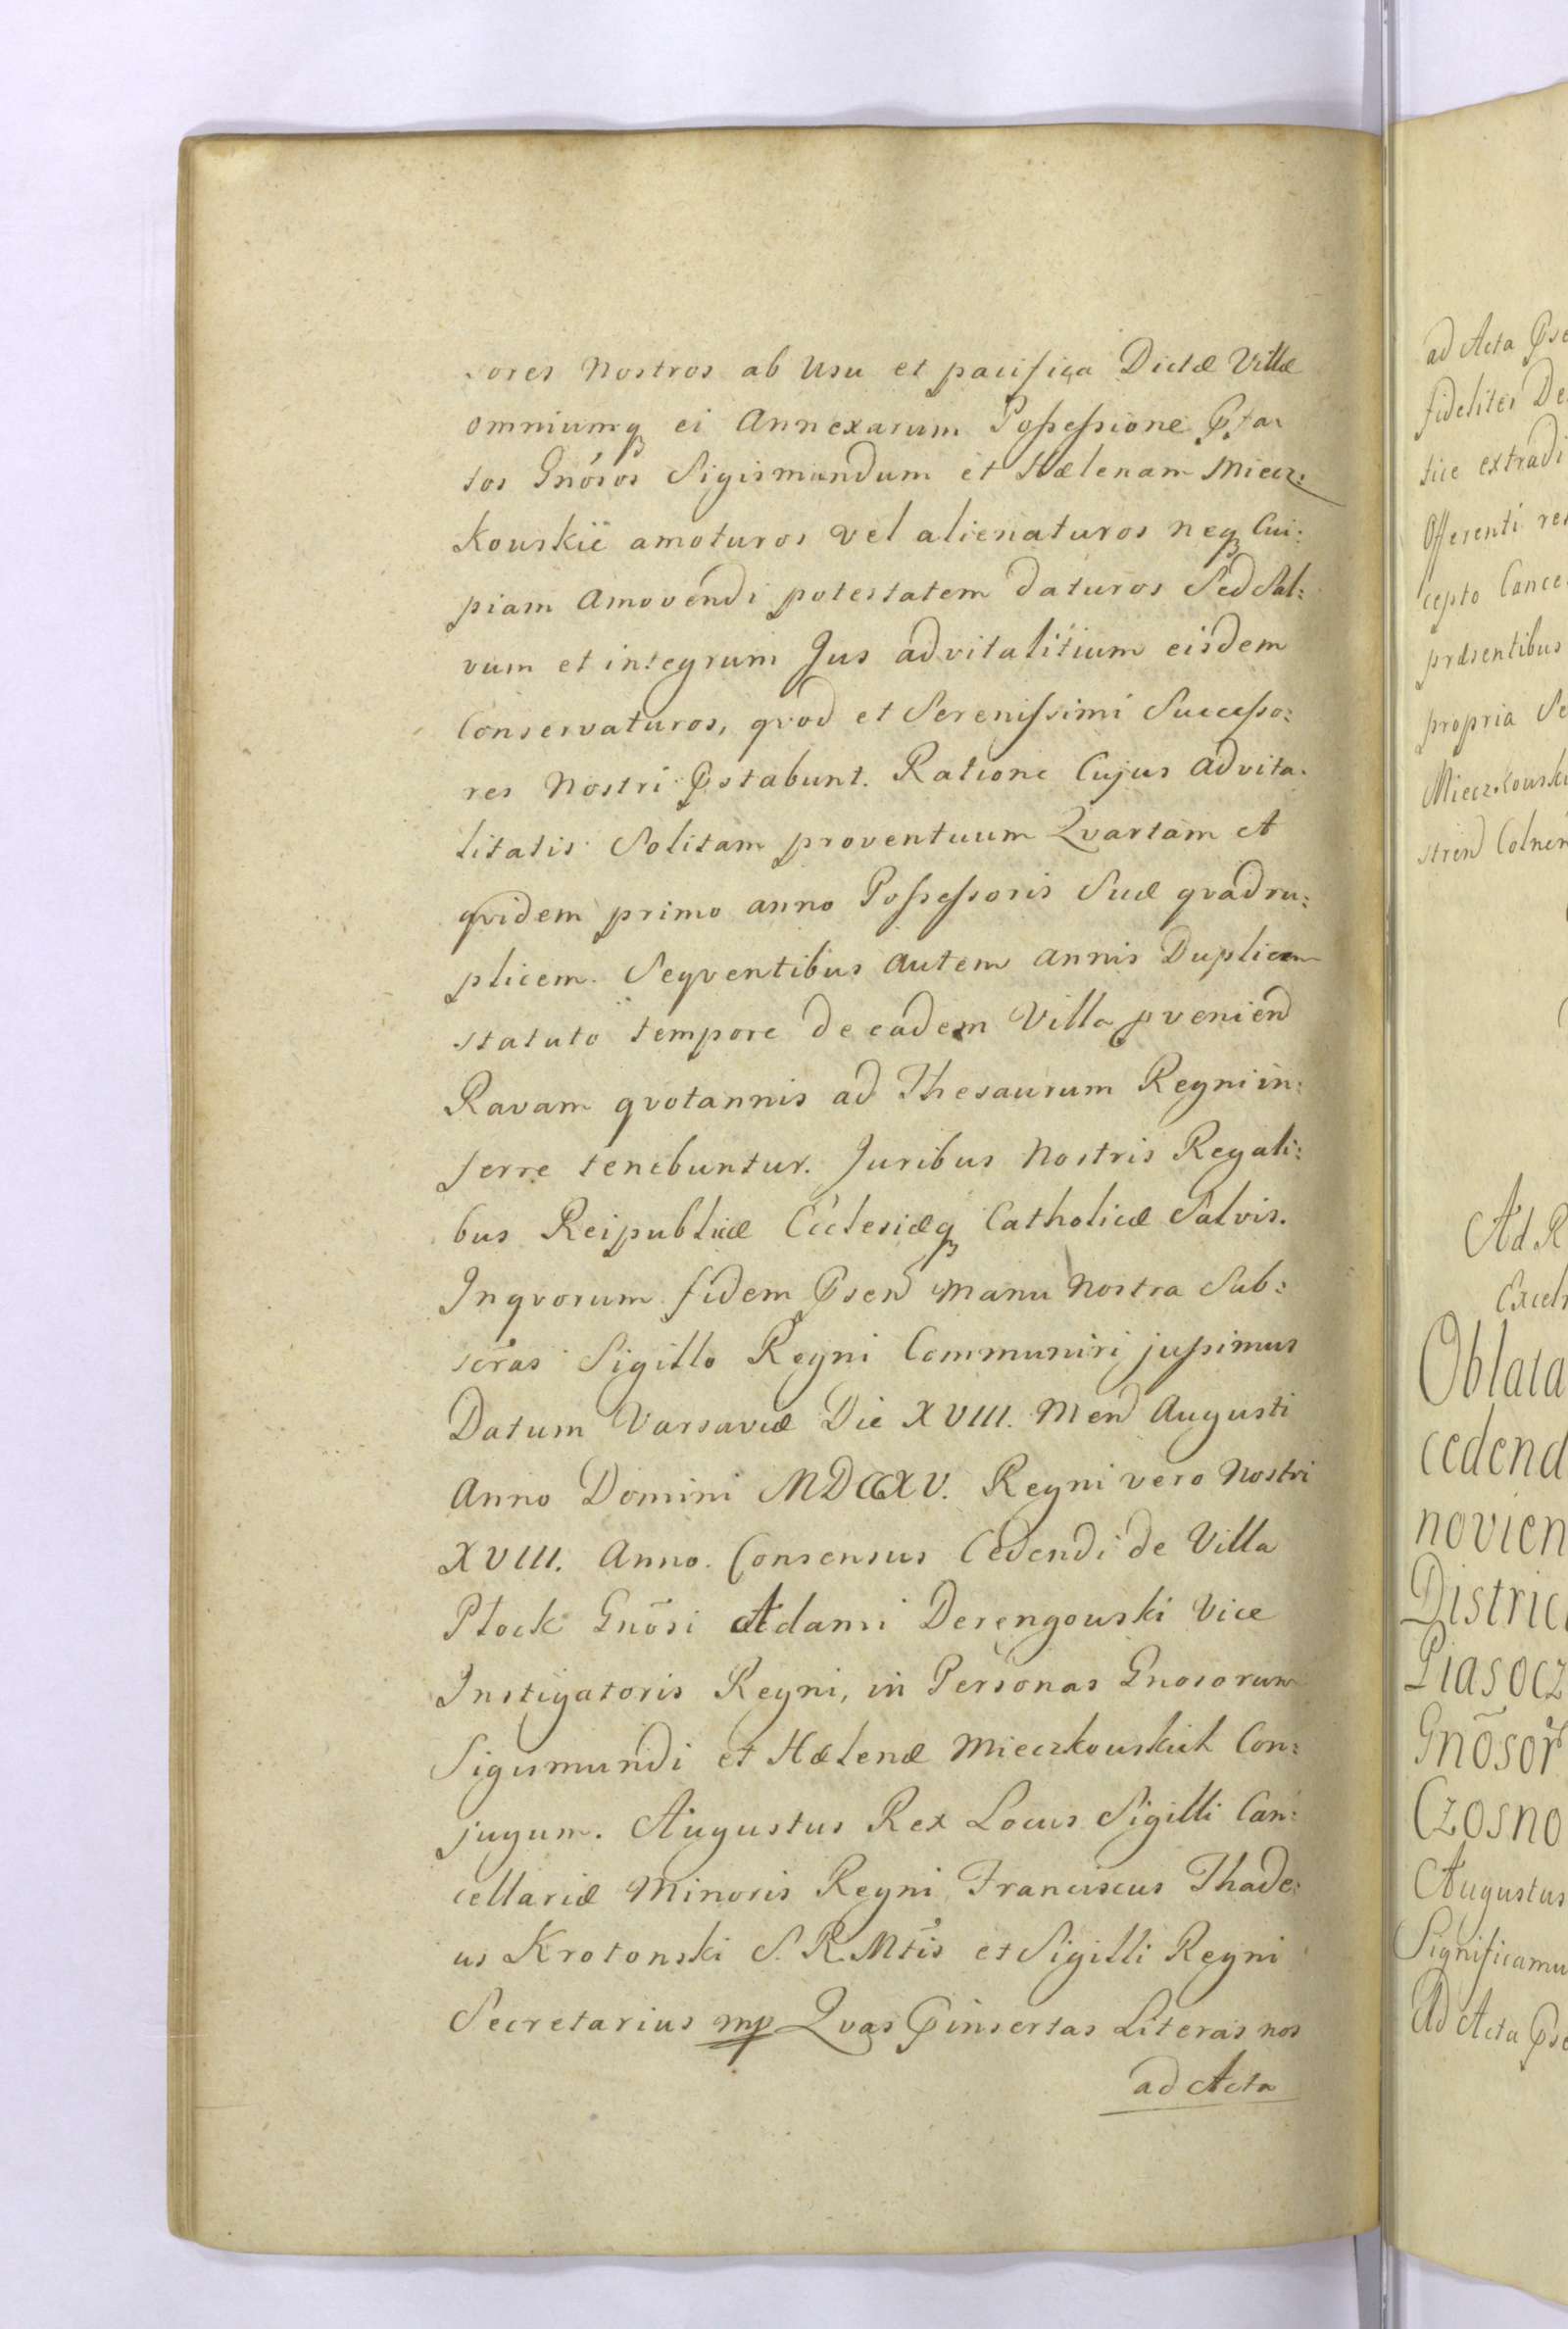 sores Nostros ab Usu et pacifica Dictæ Villæ
omniumq₃ ei Annexarum Possessione Pſta:
tos Gnosos Sigismundum et Hælenam Miecz:
kouskie amoturos vel alienaturos neq₃ Cui:
piam amovendi potestatem daturos Sed Sal:
vum et integrum Jus advitalitium eisdem
Conservaturos, qvod et Serenissimi Successo:
res Nostri Pstabunt. Ratione Cujus advita:
litatis Solitam proventuum Qvartam et
qvidem primo anno Possessoris Suæ qvadru:
plicem. Seqventibus autem annis Duplicem
statuto tempore de eadem Villa pveniend
Ravam qvotannis ad Thesaurum Regni in:
ferre tenebuntur. Juribus Nostris Regali:
bus Reipublicæ Ecclesiæq₃ Catholicæ Salvis.
In qvorum fidem Psend manu Nostra Sub:
scras Sigillo Regni Communiri jussimus
Datum Varsaviæ Die XVIII. Men Augusti
Anno Domini MDCCXV. Regni vero Nostri
XVIII. Anno. Consensus Cedendi de Villa
Ptock Gnosi Adami Derengouski Vice
Instigatoris Regni, in Personas Gnosorum
Sigismundi et Hælenæ Mieczkouskich Con:
jugum. Augustus Rex Locus Sigilli Can:
cellariæ Minoris Regni Franciscus Thade:
us Krotonski S. R. Mtis et Sigilli Regni
Secretarius mp Qvas Pinsertas Literas nos
ad Acta
ad Acta Pse
fideliter De
tice extradi
Offerenti re
cepto Conce
præsentibus
propria Se
Mieczkouski
stren Colnen
Ad R
Excel
Oblata
cedend
novien
Distric
Piasocz
Gnõsor
Czosno
Augustus
Significamu
Ad Acta Pse